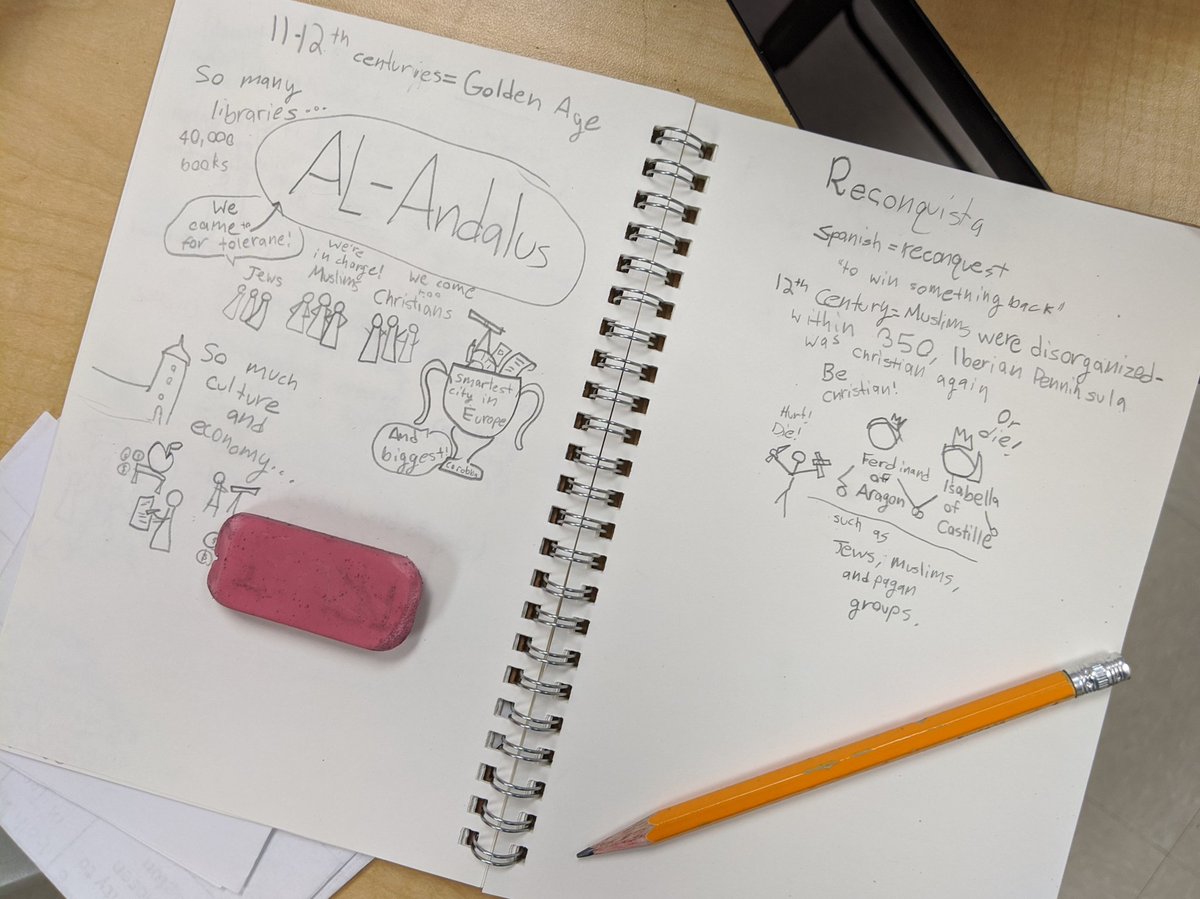 11-12th centuries= Golden Age
So many
libraries...
40,000
books
AL-Andalus
We
came to
for tolerane!
Jews
We're
in charge!
Muslims
We come
too
Christians
So much
culture
and
economy...
Smartest
city in
Europe
And
biggest!
Reconquista
Spanish = reconquest
"to win something back"
12th Century= Muslims were disorganized-
within 350, Iberian Penninsula
was christian again
Be
christian!
Or
die!
Hurt!
Die!
Ferdinand
of
Aragon
Isabella
of
Castille
such as
Jews, muslims,
and pagan
groups.